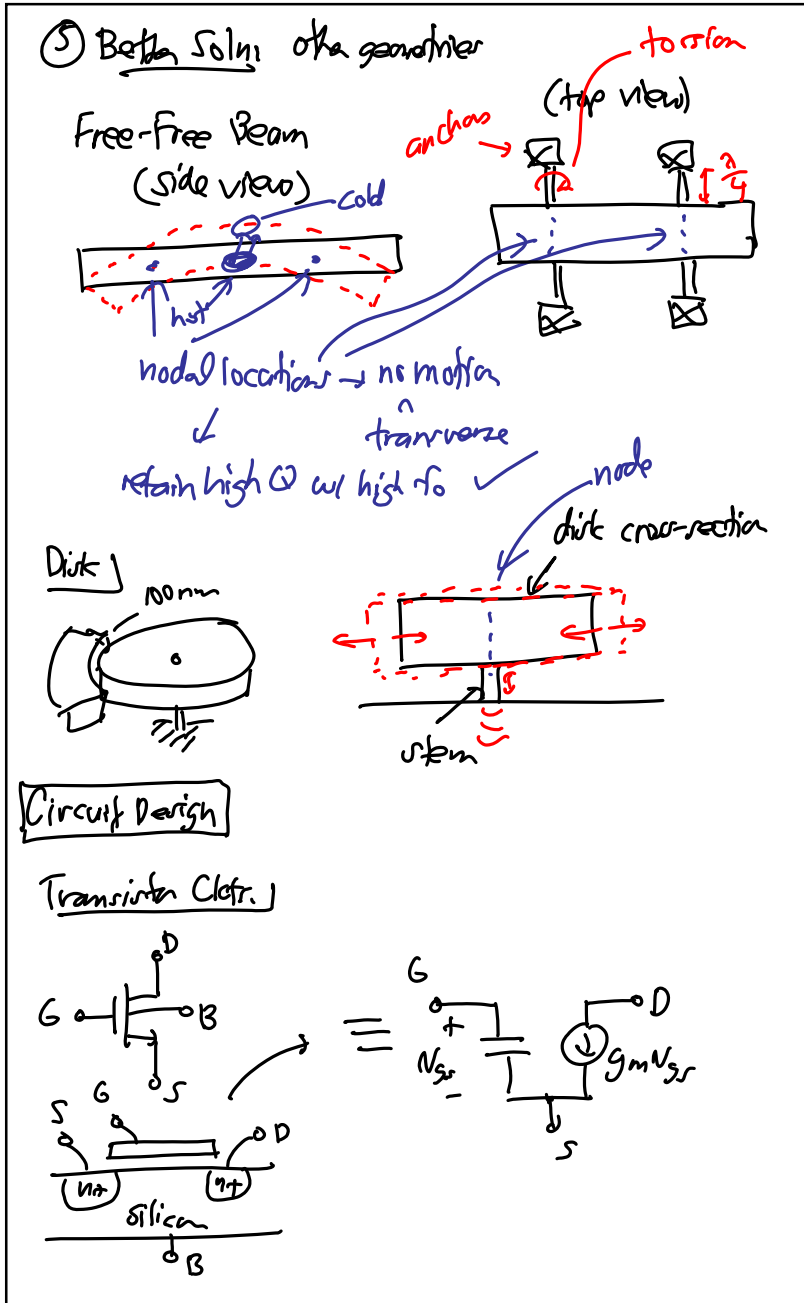 ⑤ Better Soln: other geometries
torsion
(top view)
Free-Free Beam
(side view)
anchors
cold
λ/4
hot
nodal locations → no motion
^
transverse
retain high Q w/ high fo ✓
node
disk cross-section
Disk
100nm
stem
Circuit Design
Transistor Ckts.
D
G
B
S
G
+
vgs
-
D
gmvgs
S
G
S
D
n+
n+
silicon
B